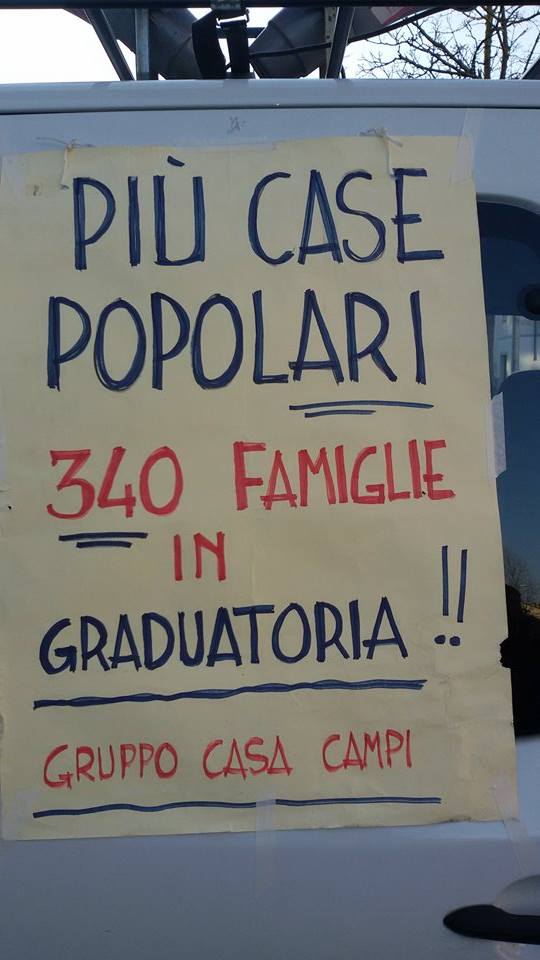 PIÙ CASE
POPOLARI
340 FAMIGLIE
IN
GRADUATORIA !!
GRUPPO CASA CAMPI